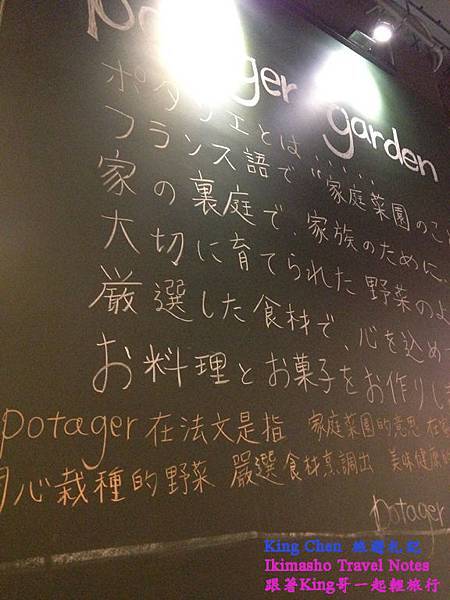 Potager garden
ポタジエとは
フランス語で "家庭菜園のこ
家の裏庭で、家族のために、
大切に育てられた野菜のよ
厳選した食材で、心を込め
お料理とお菓子をお作りしま
potager 在法文是指 家庭菜園的意思 在家
用心栽種的野菜 嚴選食材烹調出 美味健康的
potager
King Chen 旅遊札記
Ikimasho Travel Notes
跟著King哥一起輕旅行